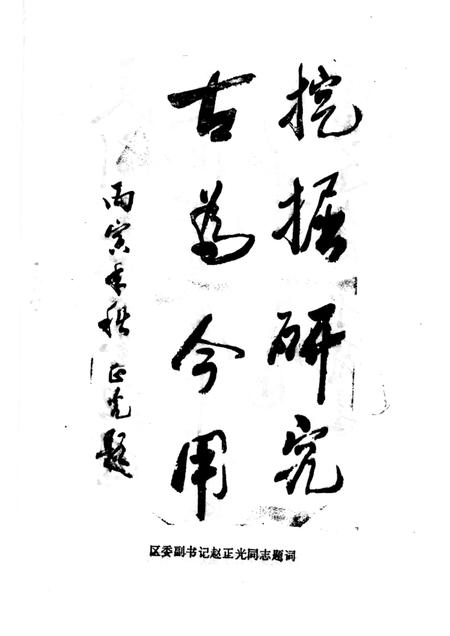 挖掘研究
古为今用
丙寅年秋正光题
区委副书记赵正光同志题词